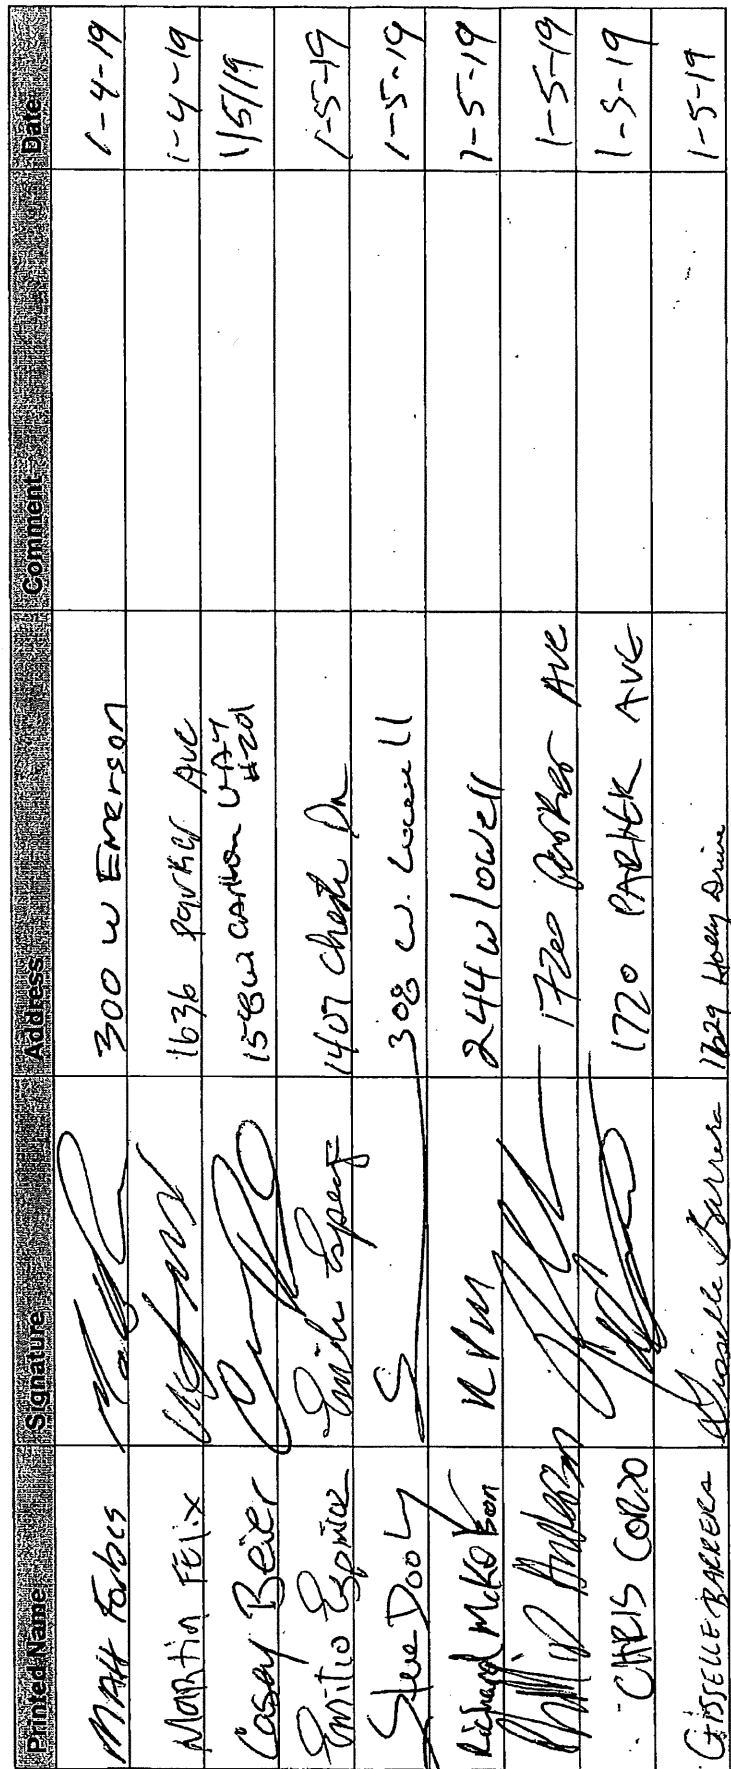 Printed Name Signature Address Comment Date
MAtt Forbes 300 W Emerson 1-4-19
Martin Felix 1636 Parker Ave 1-4-19
Casey Beier 1548 W CArlton WAY #201 1/5/19
Emilio Emilio 1407 Chest Dr 1-5-19
Steve Dooly 308 W. Lowell 1-5-19
Richard RVM 244 w lowell 1-5-19
Phillip Anderson 1720 Parker Ave 1-5-19
CHRIS CORZO 1720 PARKER AVE 1-5-19
GISSELLE BARRERA Gisselle Barrera 1729 Holly Drive 1-5-19